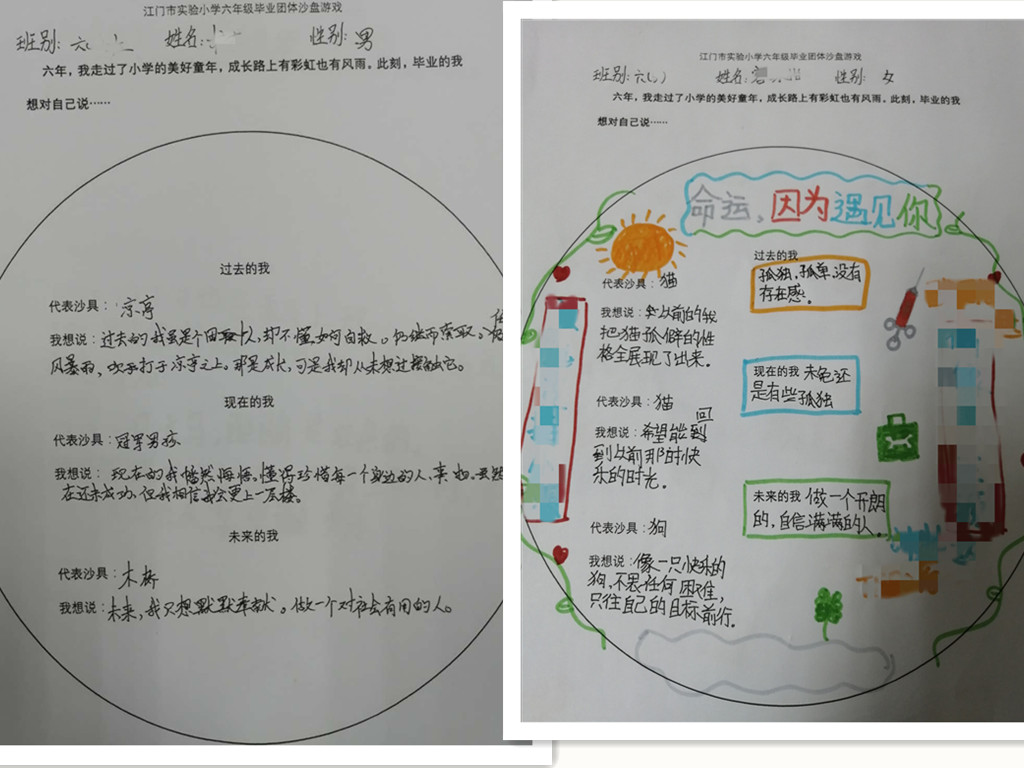 江门市实验小学六年级毕业团体沙盘游戏
班别: 六 姓名: 性别: 男
六年，我走过了小学的美好童年，成长路上有彩虹也有风雨。此刻，毕业的我
想对自己说……
过去的我
代表沙具：凉亭
我想说：过去的我虽是个 却不懂如何自救。 而索取。
风暴雨，吹 打于凉亭之上。那是成长，可是我却从未想过接触它。
现在的我
代表沙具：冠军男孩
我想说：现在的我恍然悔悟。懂得珍惜每一个身边的人、事、物。
在还未成功，但我相信我会更上一层楼。
未来的我
代表沙具：木桥
我想说：未来，我只想默默奉献。做一个对社会有用的人。
江门市实验小学六年级毕业团体沙盘游戏
班别:六( ) 姓名: 性别: 女
六年，我走过了小学的美好童年，成长路上有彩虹也有风雨。此刻，毕业的我
想对自己说……
命运，因为遇见你
过去的我
孤独，孤单，没有
存在感。
代表沙具：猫
我想说：以前的我
把猫孤僻的性
格全展现了出来。
现在的我 未免还
是有些孤独
代表沙具：猫
我想说：希望能回到
到以前那时快
乐的时光。
未来的我 做一个开朗
的，自信满满的人。
代表沙具：狗
我想说：像一只快乐的
狗，不畏任何困难，
只往自己的目标前行。